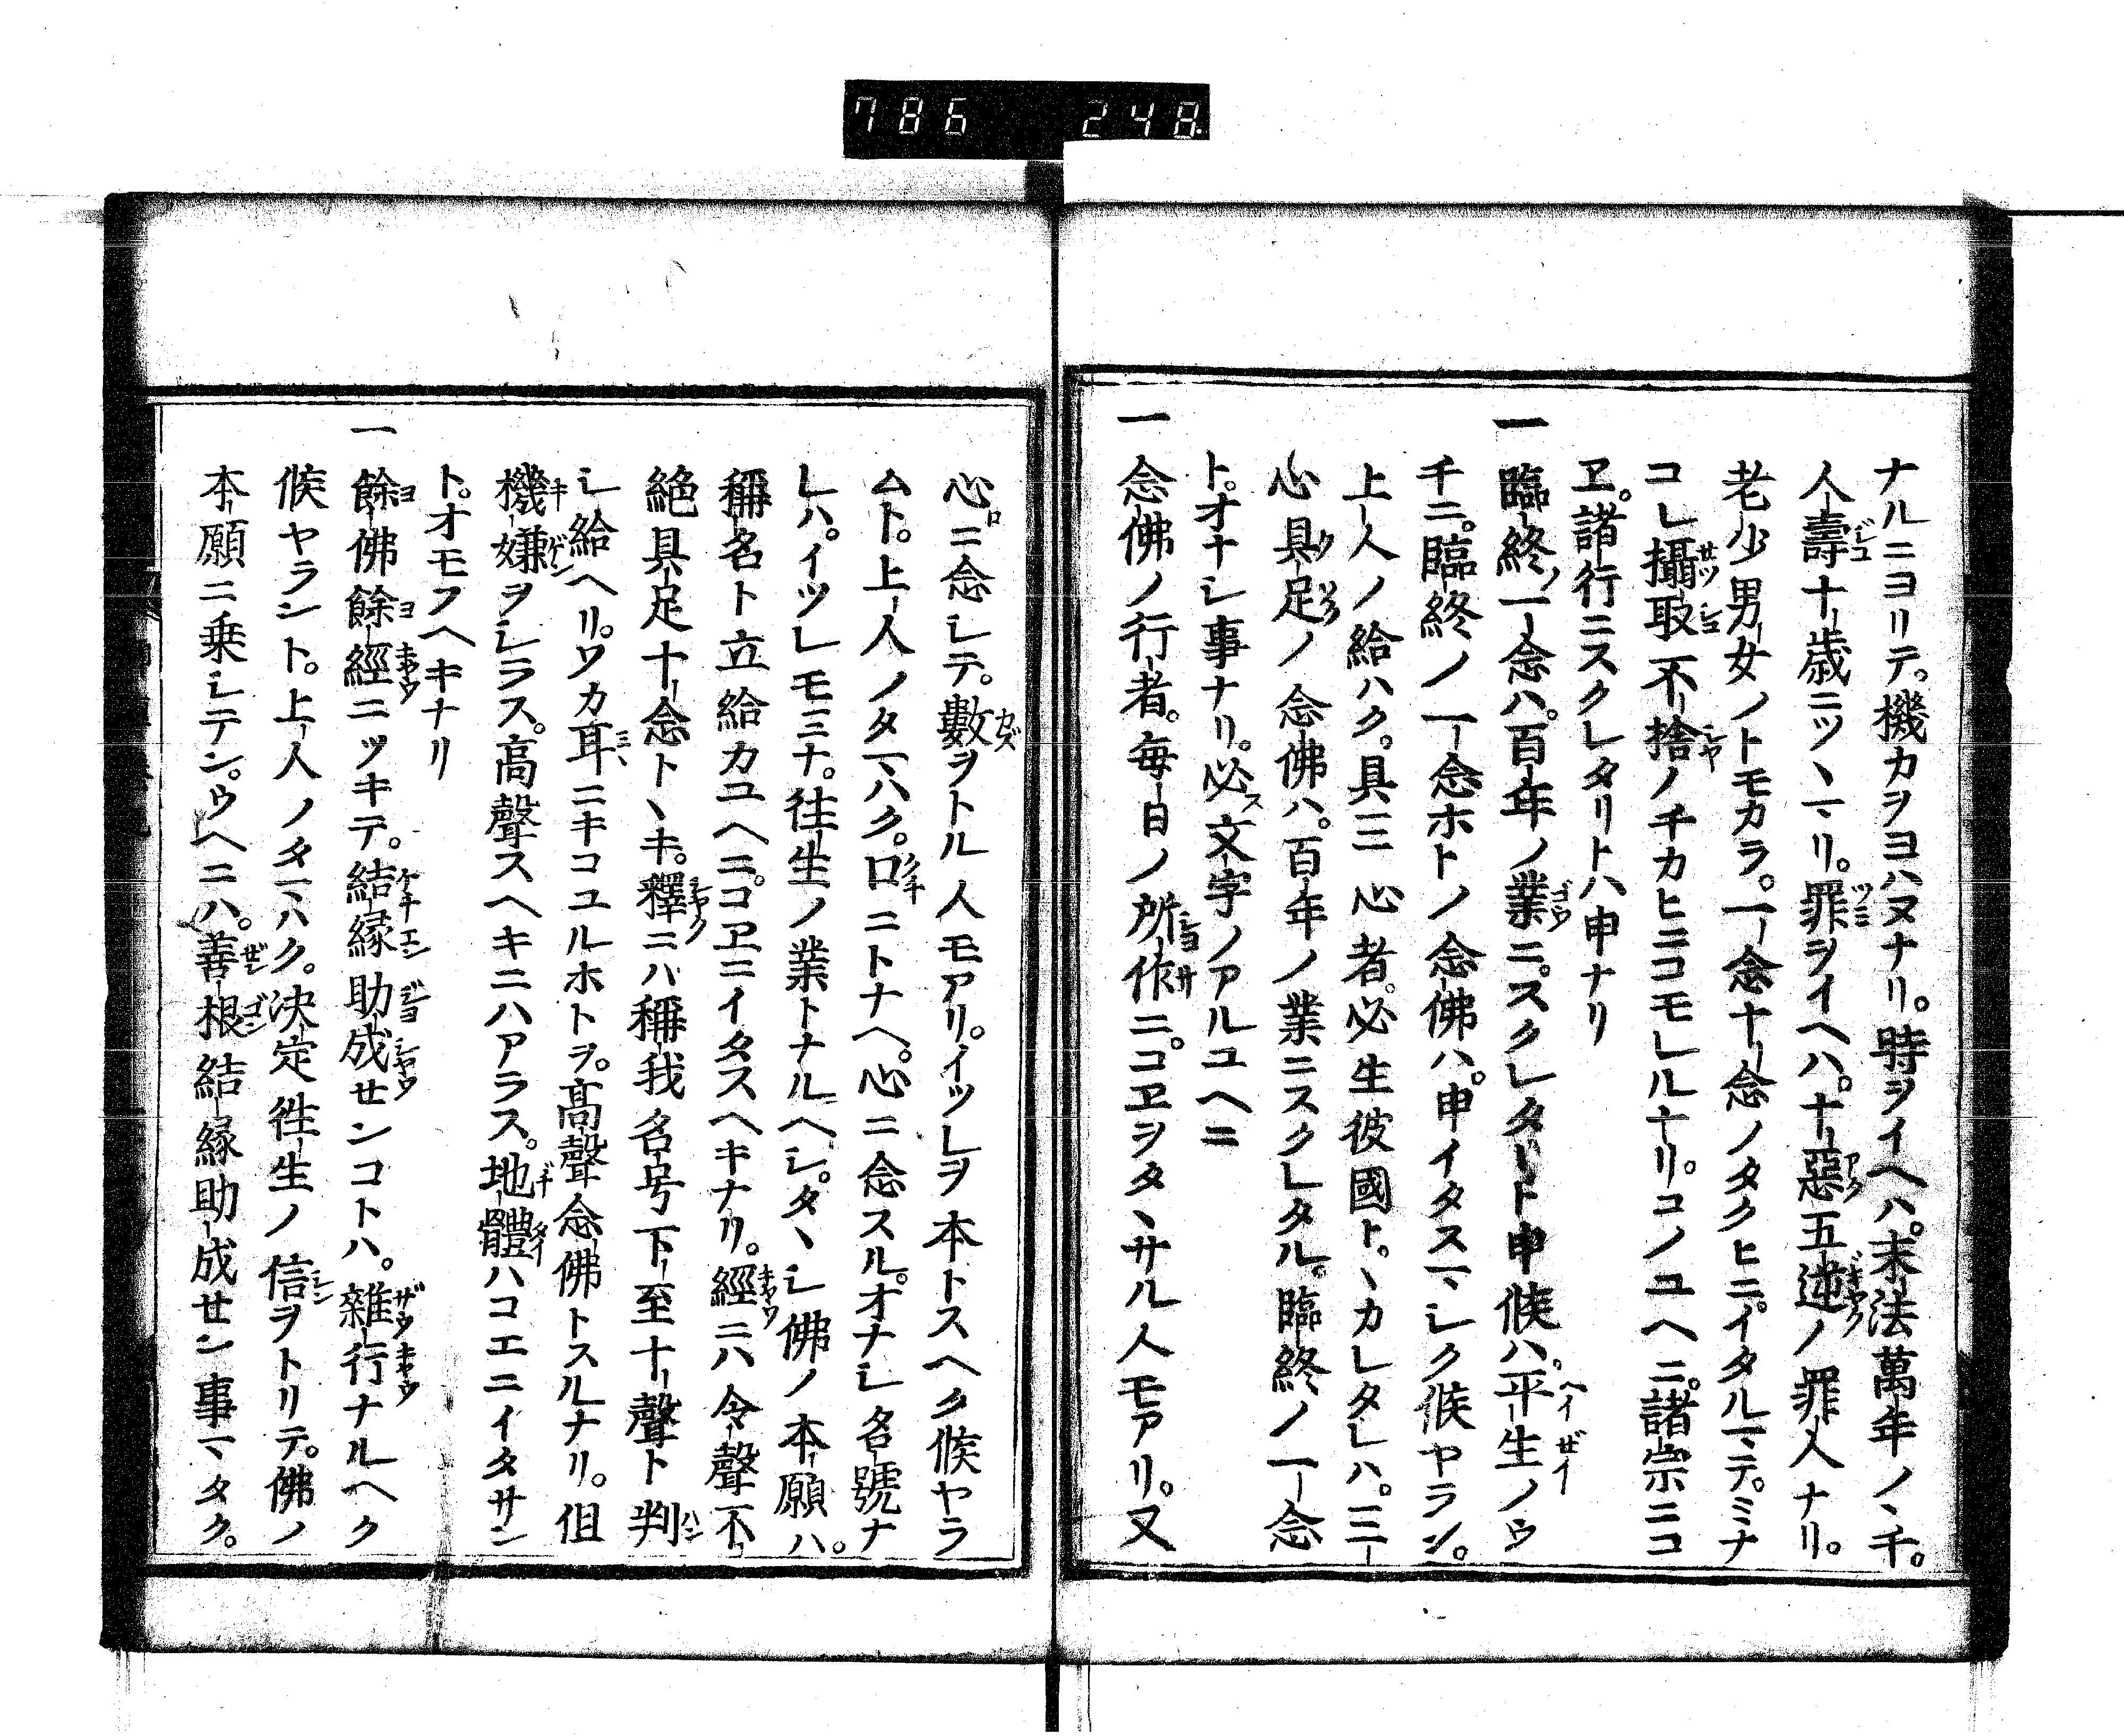 786 248
ナルニヨリテ。機カヲヨハヌナリ。時ヲイヘハ。末法萬年ノヽ千。
人壽十歳ニツヽマリ。罪ヲイヘハ。十惡五逆ノ罪人ナリ。
老少男女ノトモカラ。一念十念ノタクヒニ。イタルマテ。ミナ
コレ攝取不捨ノチカヒニコモレルナリ。コノユヘニ。諸宗ニコ
ヱ。諸行ニスクレタリトハ申ナリ
一 臨終ノ一念ハ。百年ノ業ニ。スクレタリト申候ハ。平生ノウ
チニ。臨終ノ一念ホトノ念佛ハ。申イタスマシク候ヤラン。
上人ノ給ハク。具三心者。必生彼國ト。ヽカレタレハ。三
心具足ノ念佛ハ。百年ノ業ニスクレタル。臨終ノ一念
ト。オナシ事ナリ。必ス文字ノアルユヘニ
一 念佛ノ行者。毎日ノ所作ニ。コヱヲタヽサル人モアリ。又
心ロニ念シテ。數ヲトル人モアリ。イツレヲ本トスヘク候ヤラ
ムト。上人ノタマハク。口ニトナヘ。心ニ念スル。オナシ名號ナ
レハ。イツレモミナ。往生ノ業トナルヘシ。タヽシ佛ノ本願ハ。
稱名ト立給カユヘニ。コヱニイタスヘキナリ。經ニハ令聲不
絶具足十念トヽキ。釋ニハ稱我名号下至十聲ト判
シ給ヘリ。ワカ耳ニキコユルホトヲ。髙聲念佛トスルナリ。但
機嫌ヲシラス。髙聲スヘキニハアラス。地體ハコエニイタサン
ト。オモフヘキナリ
一 餘佛餘經ニツキテ。結縁助成せンコトハ。雜行ナルヘク
候ヤラント。上人ノタマハク。決定徃生ノ信ヲトリテ。佛ノ
本願ニ乗シテン。ウヘニハ。善根結縁助成せン事マタク。